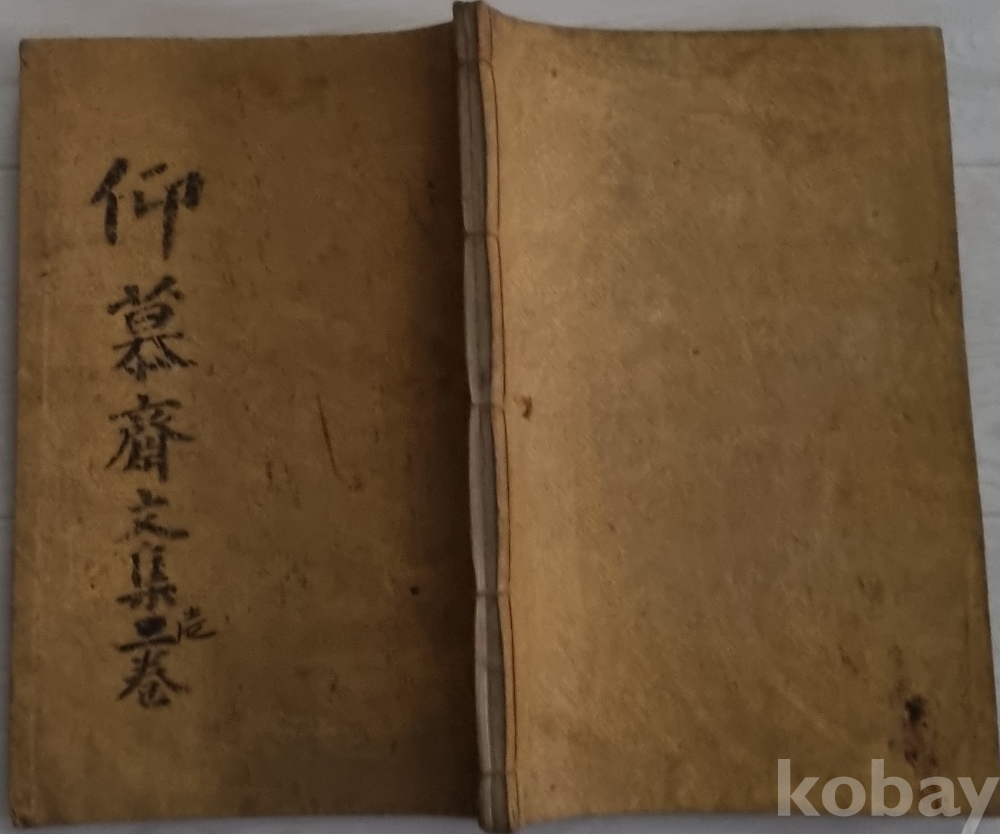 仰慕齋文集三卷
kobay